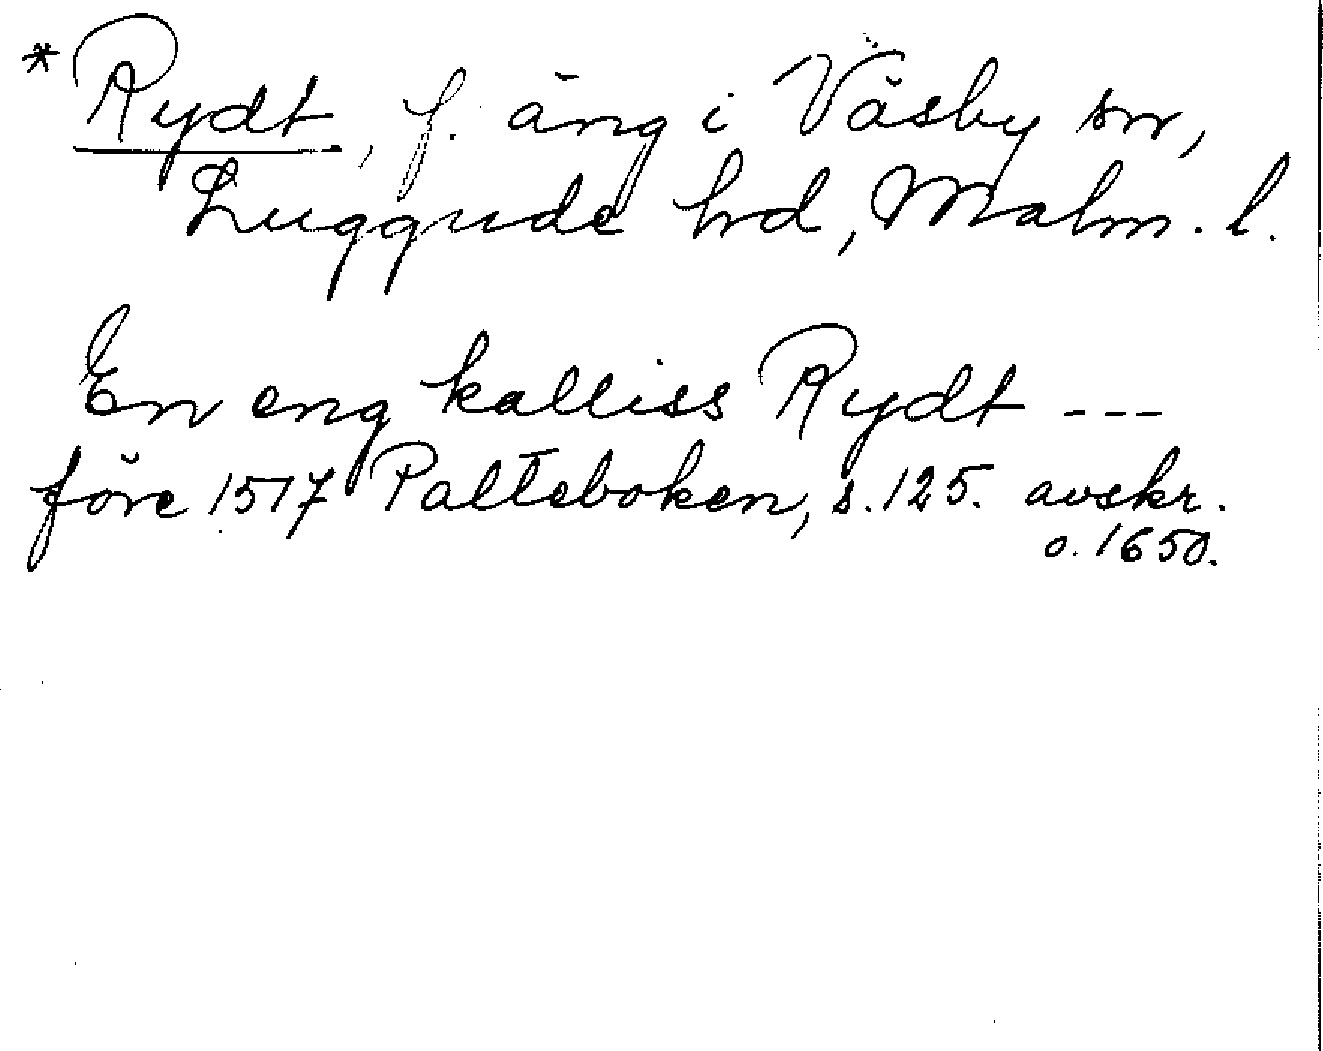 * Rydt, f. äng i Väsby sn,
Luggude hd, Malm. l.
En eng kalliss Rydt ---
före 1517 Palteboken, s. 125. avskr.
o. 1650.